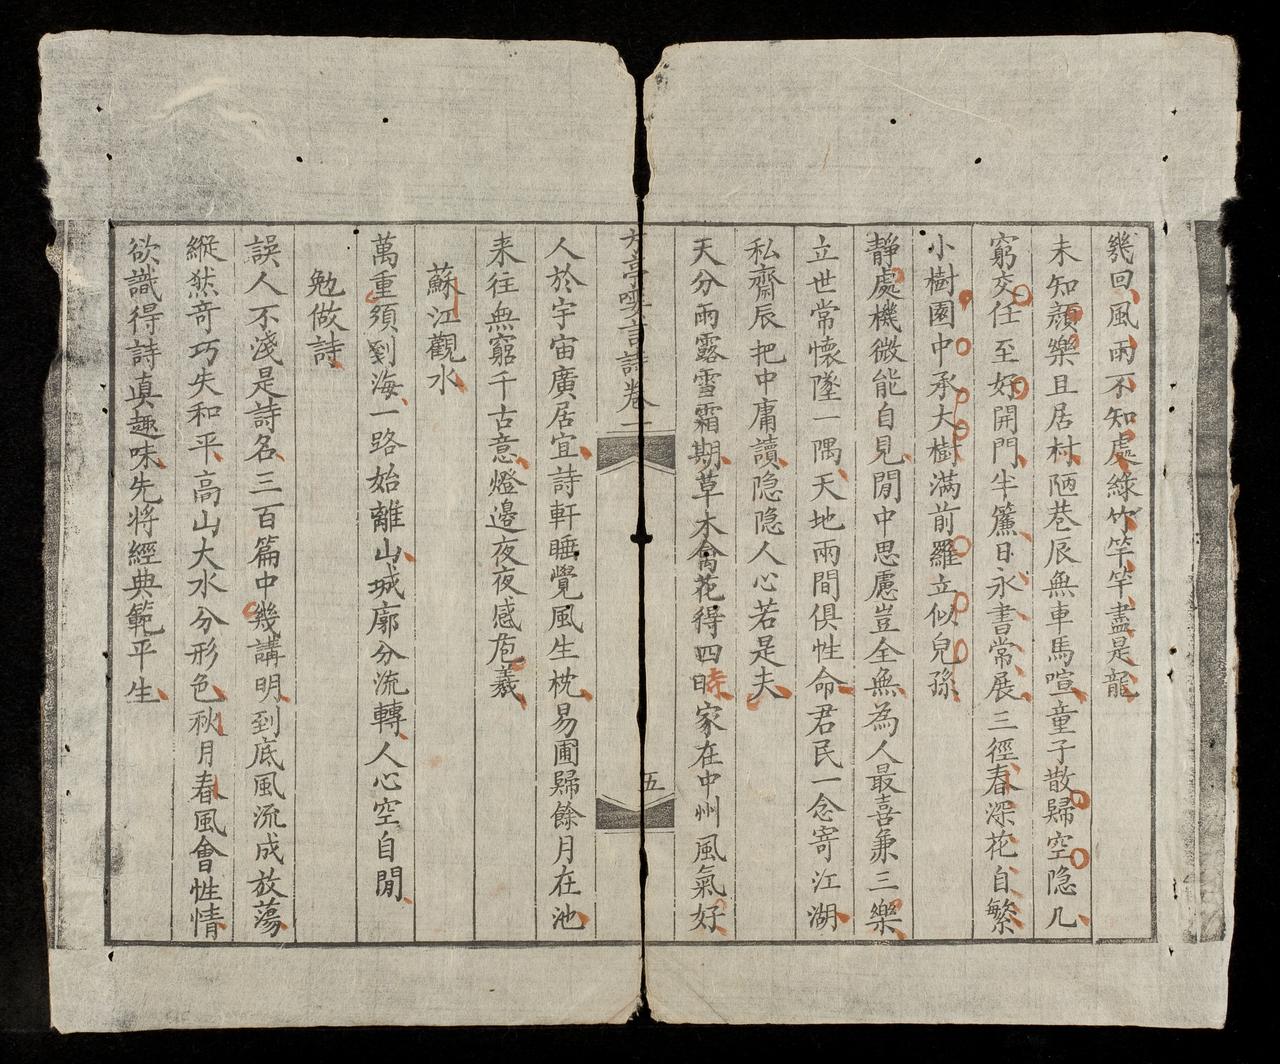 幾回風雨不知處綠竹竿竿盡是龍
未知顔樂且居村陋巷辰無車馬喧童子散歸空隐几
窮交任至好開門半簾日永書常展三徑春深花自繁
小樹園中承大樹滿前羅立似兒孫
靜處機微能自見閒中思慮豈全無為人最喜兼三樂
立世常懷墜一隅天地兩間俱性命君民一念寄江湖
私齋辰把中庸讀隐隐人心若是夫
天分雨露雪霜期草木禽花得四時家在中州風氣好
方亭 詩卷一
五
人於宇宙廣居宜詩軒睡覺風生枕易圃歸餘月在池
来往無窮千古意燈邊夜夜感庖羲
蘇江觀水
萬重須到海一路始離山城廓分流轉人心空自閒
勉做詩
誤人不淺是詩名三百篇中幾講明到底風流成放蕩
縱然竒巧失和平高山大水分形色秋月春風會性情
欲識得詩真趣味先將經典範平生